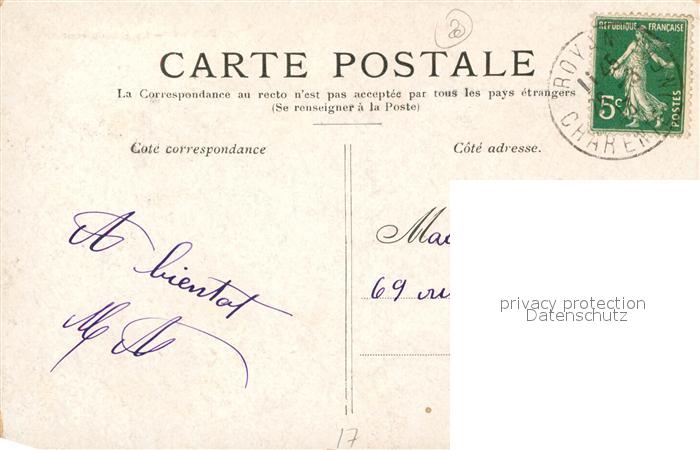 CARTE POSTALE
La Correspondance au recto n'est pas acceptée par tous les pays étrangers
(Se renseigner à la Poste)
REPUBLIQUE FRANÇAISE
5c
POSTES
ROYAN
CHAREN
Coté correspondance
Côté adresse.
A bientot
M A
Mad
69 rue
privacy protection
Datenschutz
17